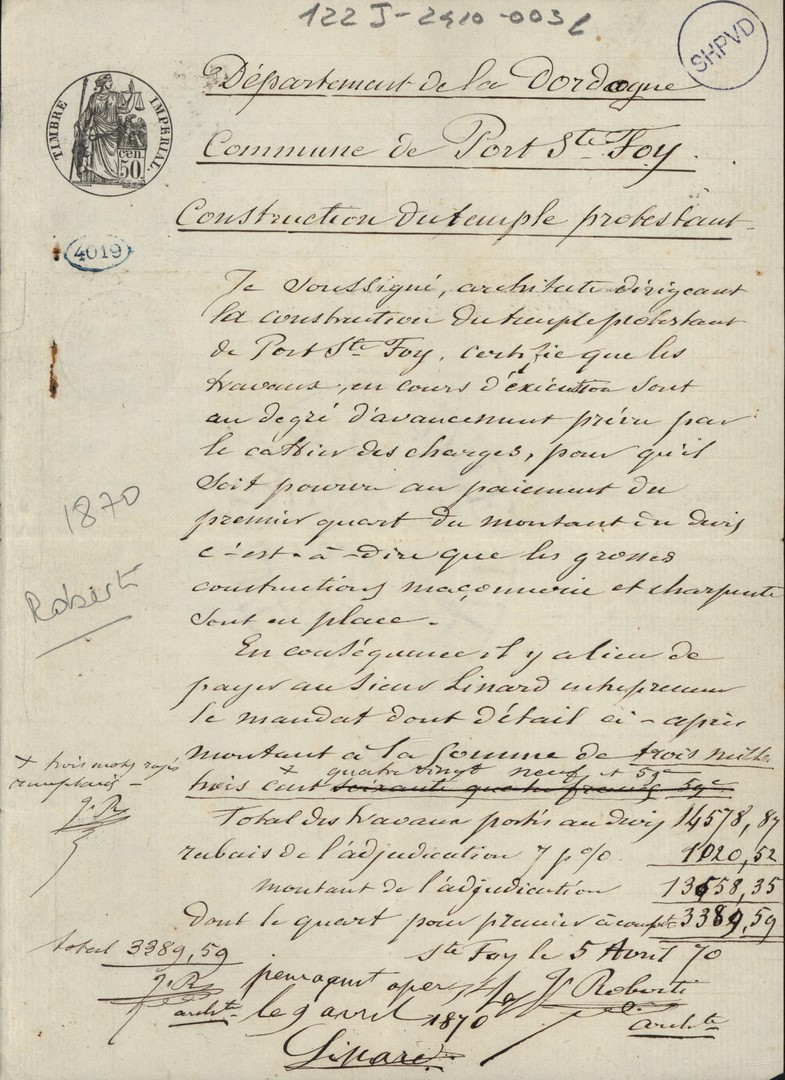 122 J-2910-003
SHPVD
TIMBRE IMPERIAL.
cen
50.
Département de la Dordogne
Commune de Port Ste Foy.
Construction du temple protestant
4019
Je Soussigné, architecte dirigeant
la construction du temple protestant
de Port Ste Foy, certifie que les
travaux, en cours d'exécution sont
au degré d'avancement prévu par
le cahier des charges, pour qu'il
soit pourvu au paiement du
premier quart du montant du devis
c'est-à-dire que les grosses
constructions maçonnerie et charpente
sont en place.
1870
Roberti
En conséquence il y a lieu de
payer au Sieur Linard entrepreneur
le mandat dont détail ci-après
montant à la Somme de trois mille
quatre vingt neuf et 59c
trois cent + soixante quatre francs 59c
+ trois mots rayés
remplacés -
J. R
Total des travaux portés au devis 14578,87
rabais de l'adjudication 7 p% 1020,52
montant de l'adjudication 13558,35
Dont le quart pour premier à compte 3389,59
total 3389,59
J. R
archte
Ste Foy le 5 Avril 70
J Roberti
archte
pour
le 9 avril 1870
Linard